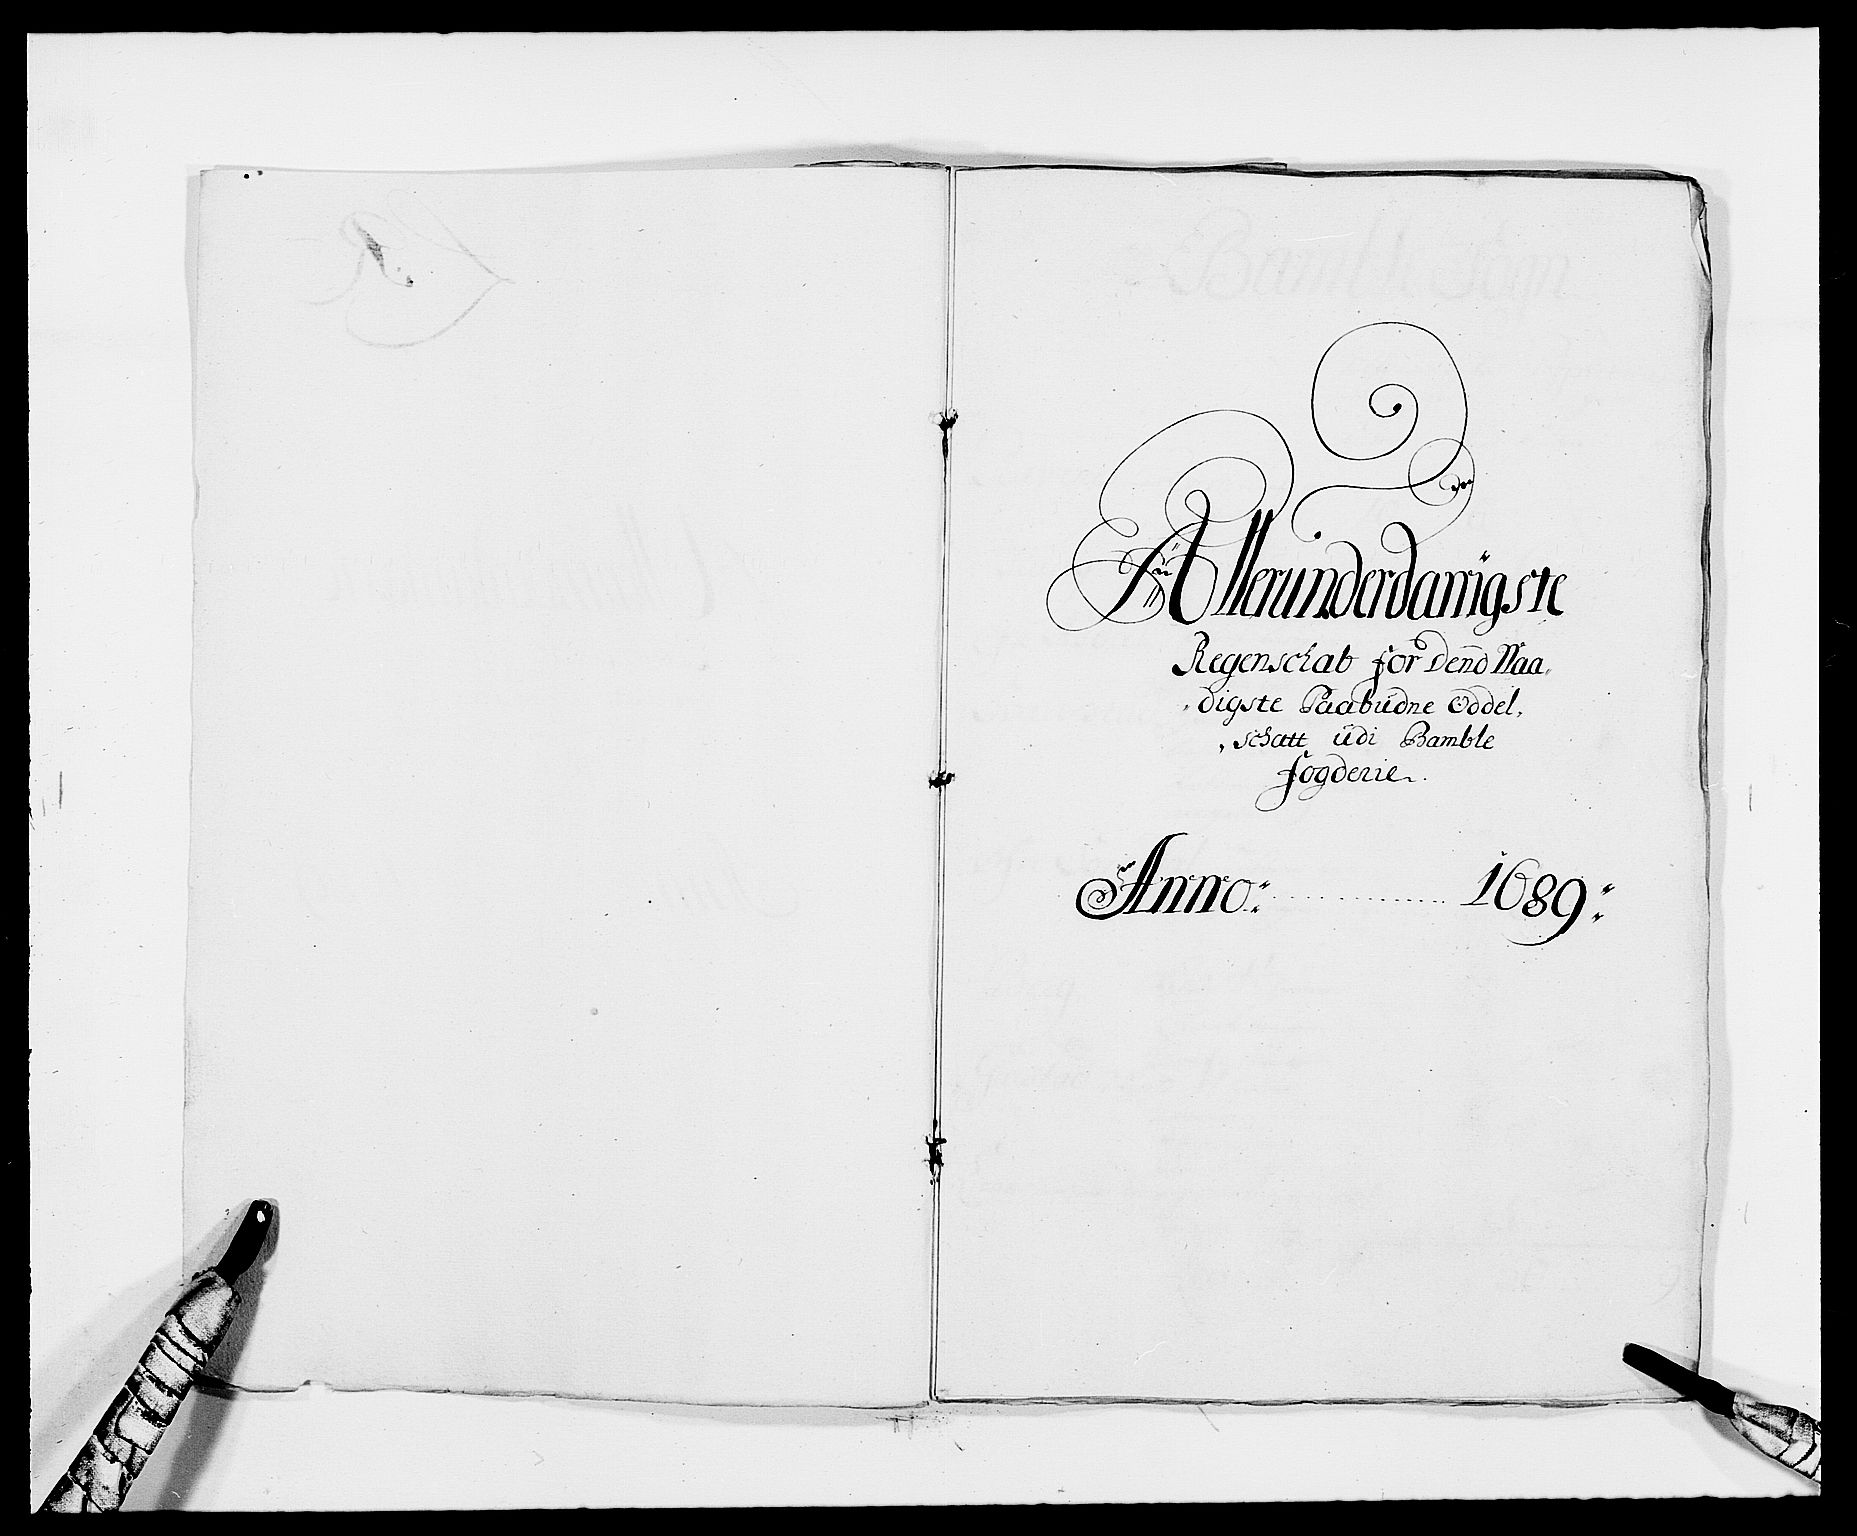 Allerunderdanigste
Regenschab for Dend Naa-
digste Paabudne Oddel,
schatt udi Bamble
fogderie.
Anno: 1689: